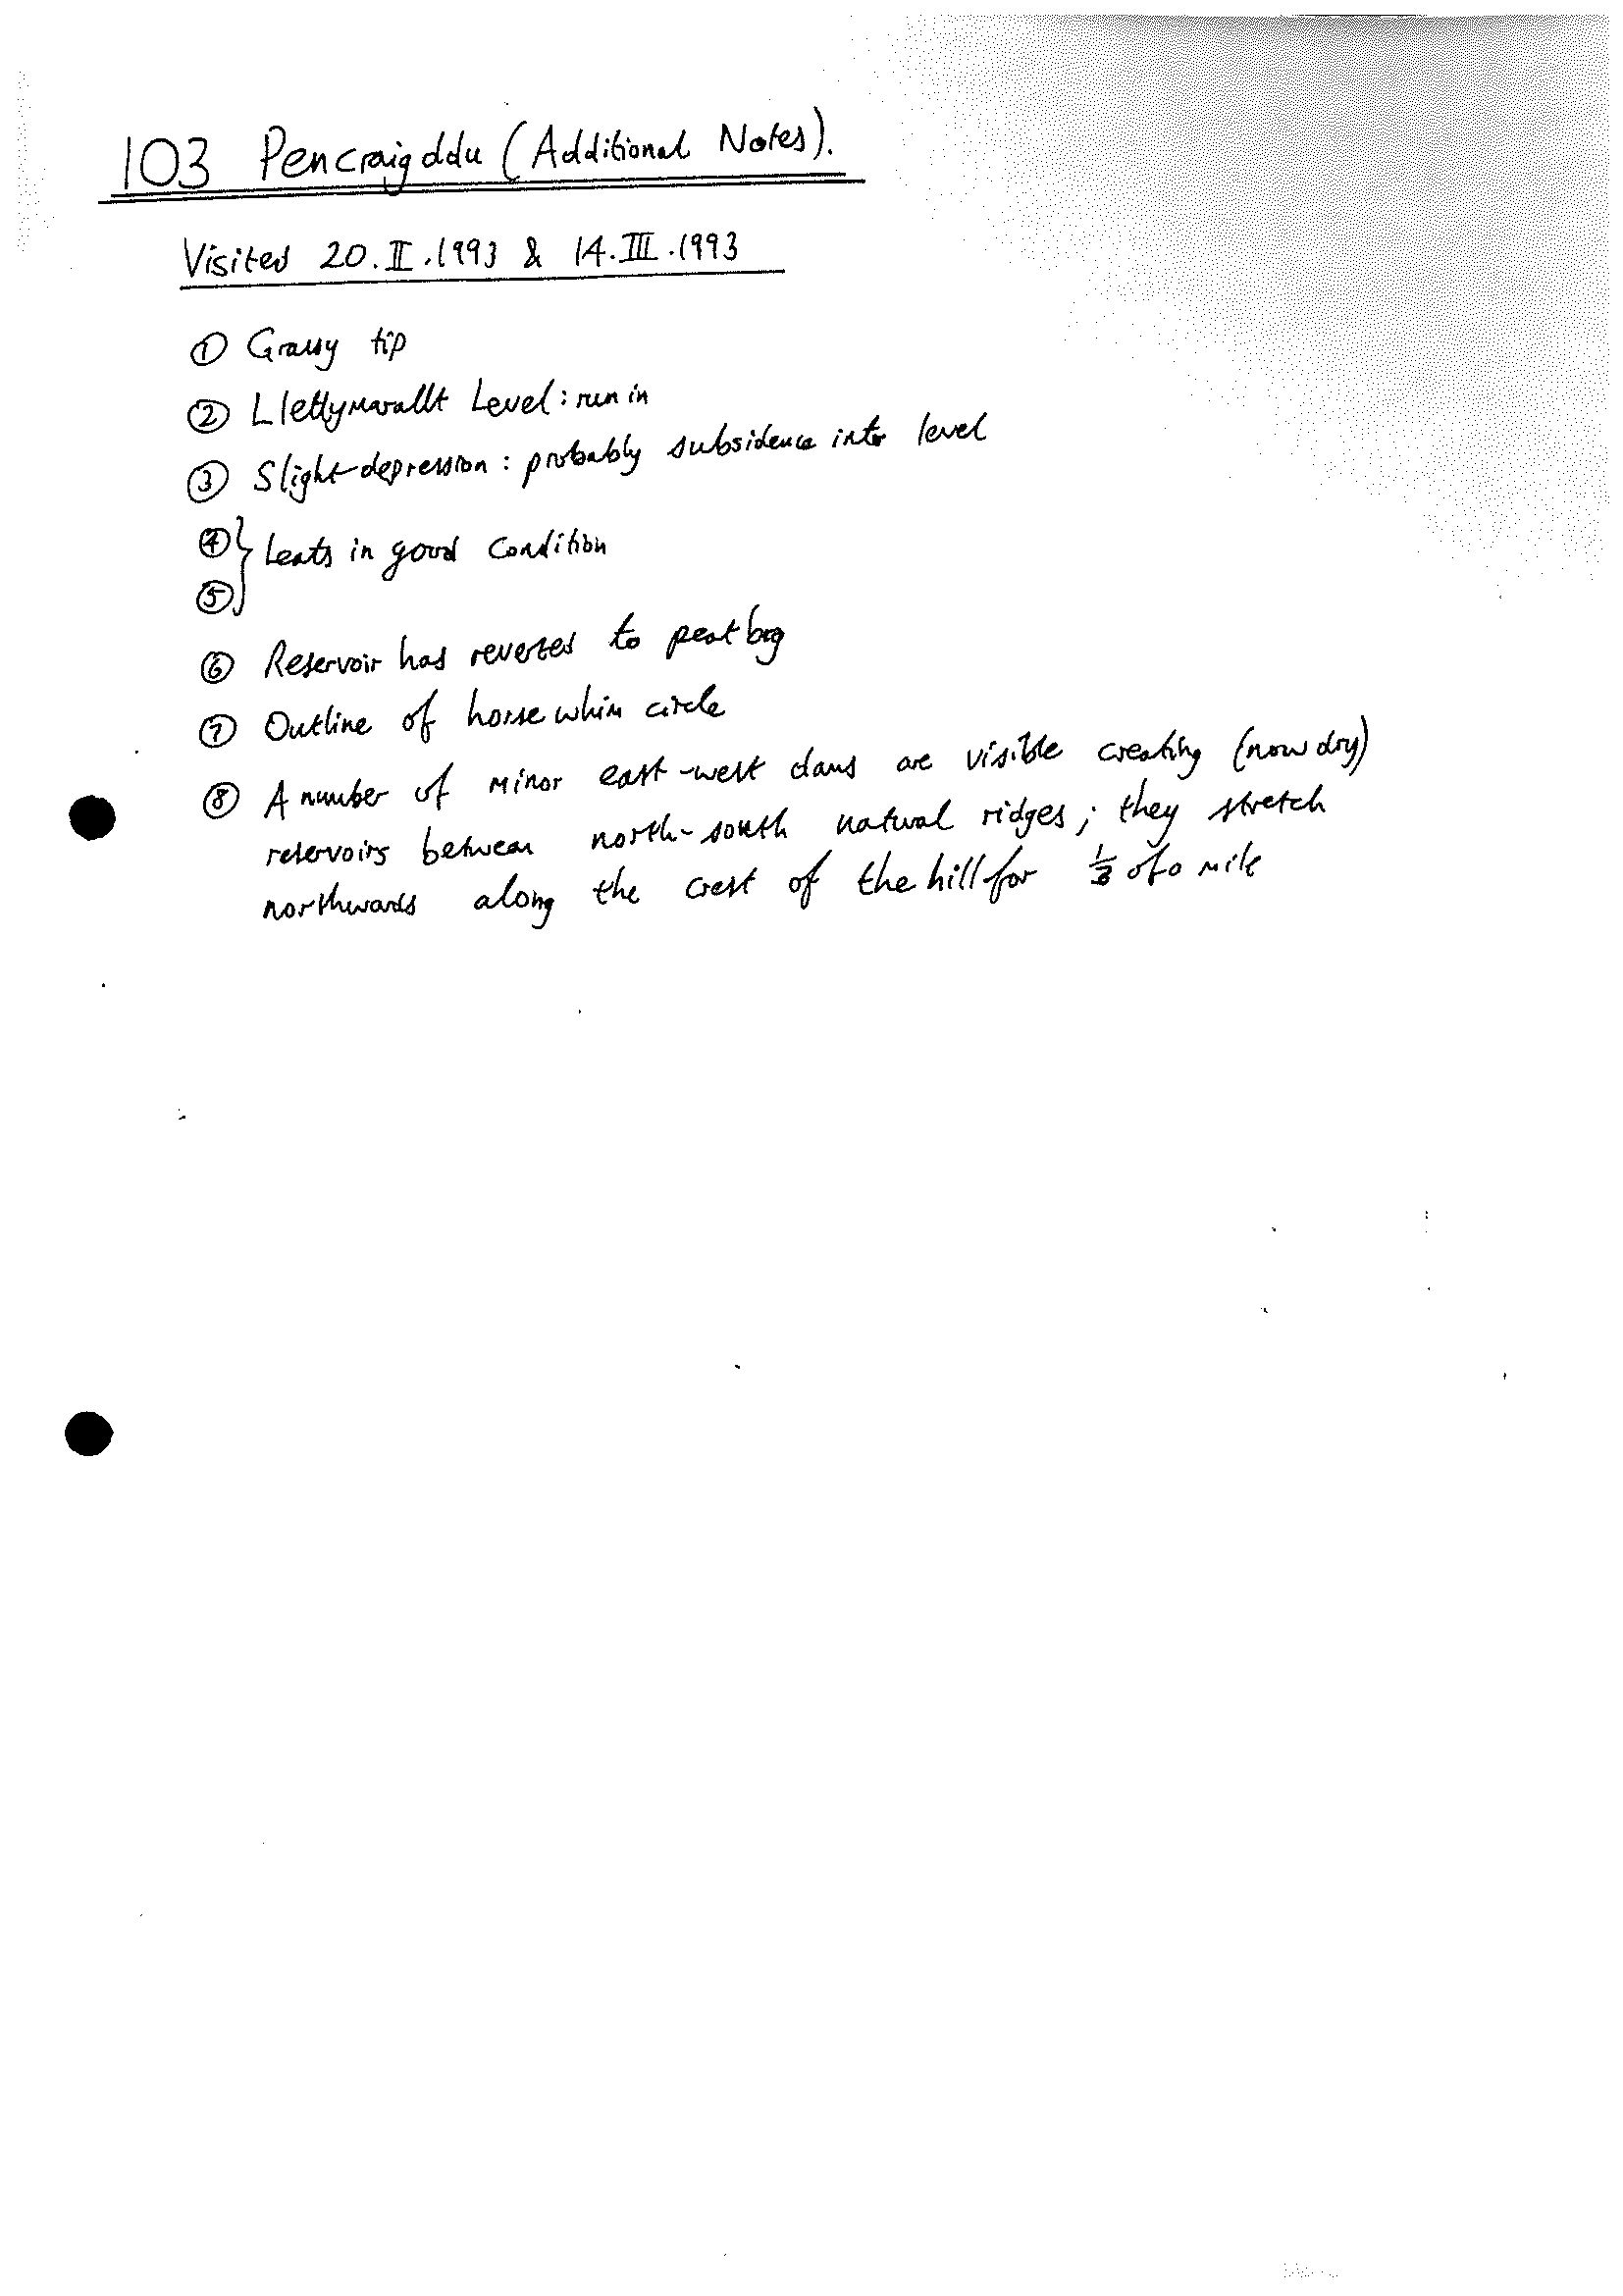 103 Pencraigddu (Additional Notes).
Visited 20.II.1993 & 14.III.1993
① Grassy tip
② Lletty Marallt Level: run in
③ Slight depression: probably subsidence into level
④ } Leats in good condition
⑤
⑥ Reservoir has reverted to peat bog
⑦ Outline of horse whim circle
⑧ A number of minor east-west dams are visible creating (now dry)
reservoirs between north-south natural ridges; they stretch
northwards along the crest of the hill for of a mile